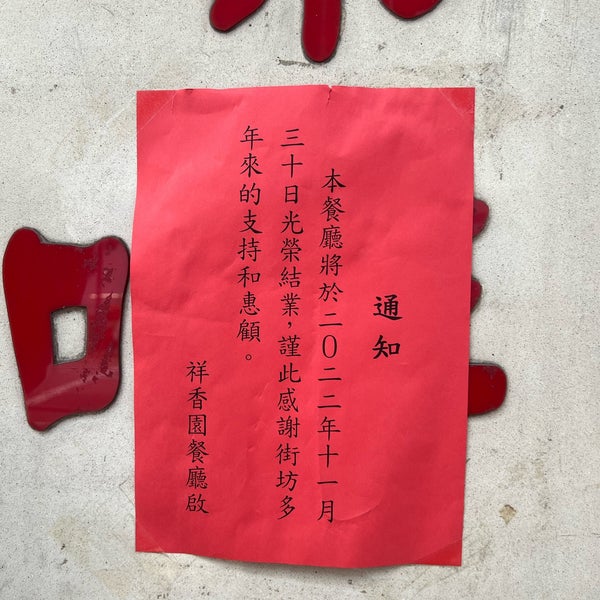 通知
本餐廳將於二〇二二年十一月
三十日光榮結業，謹此感謝街坊多
年來的支持和惠顧。
祥香園餐廳啟